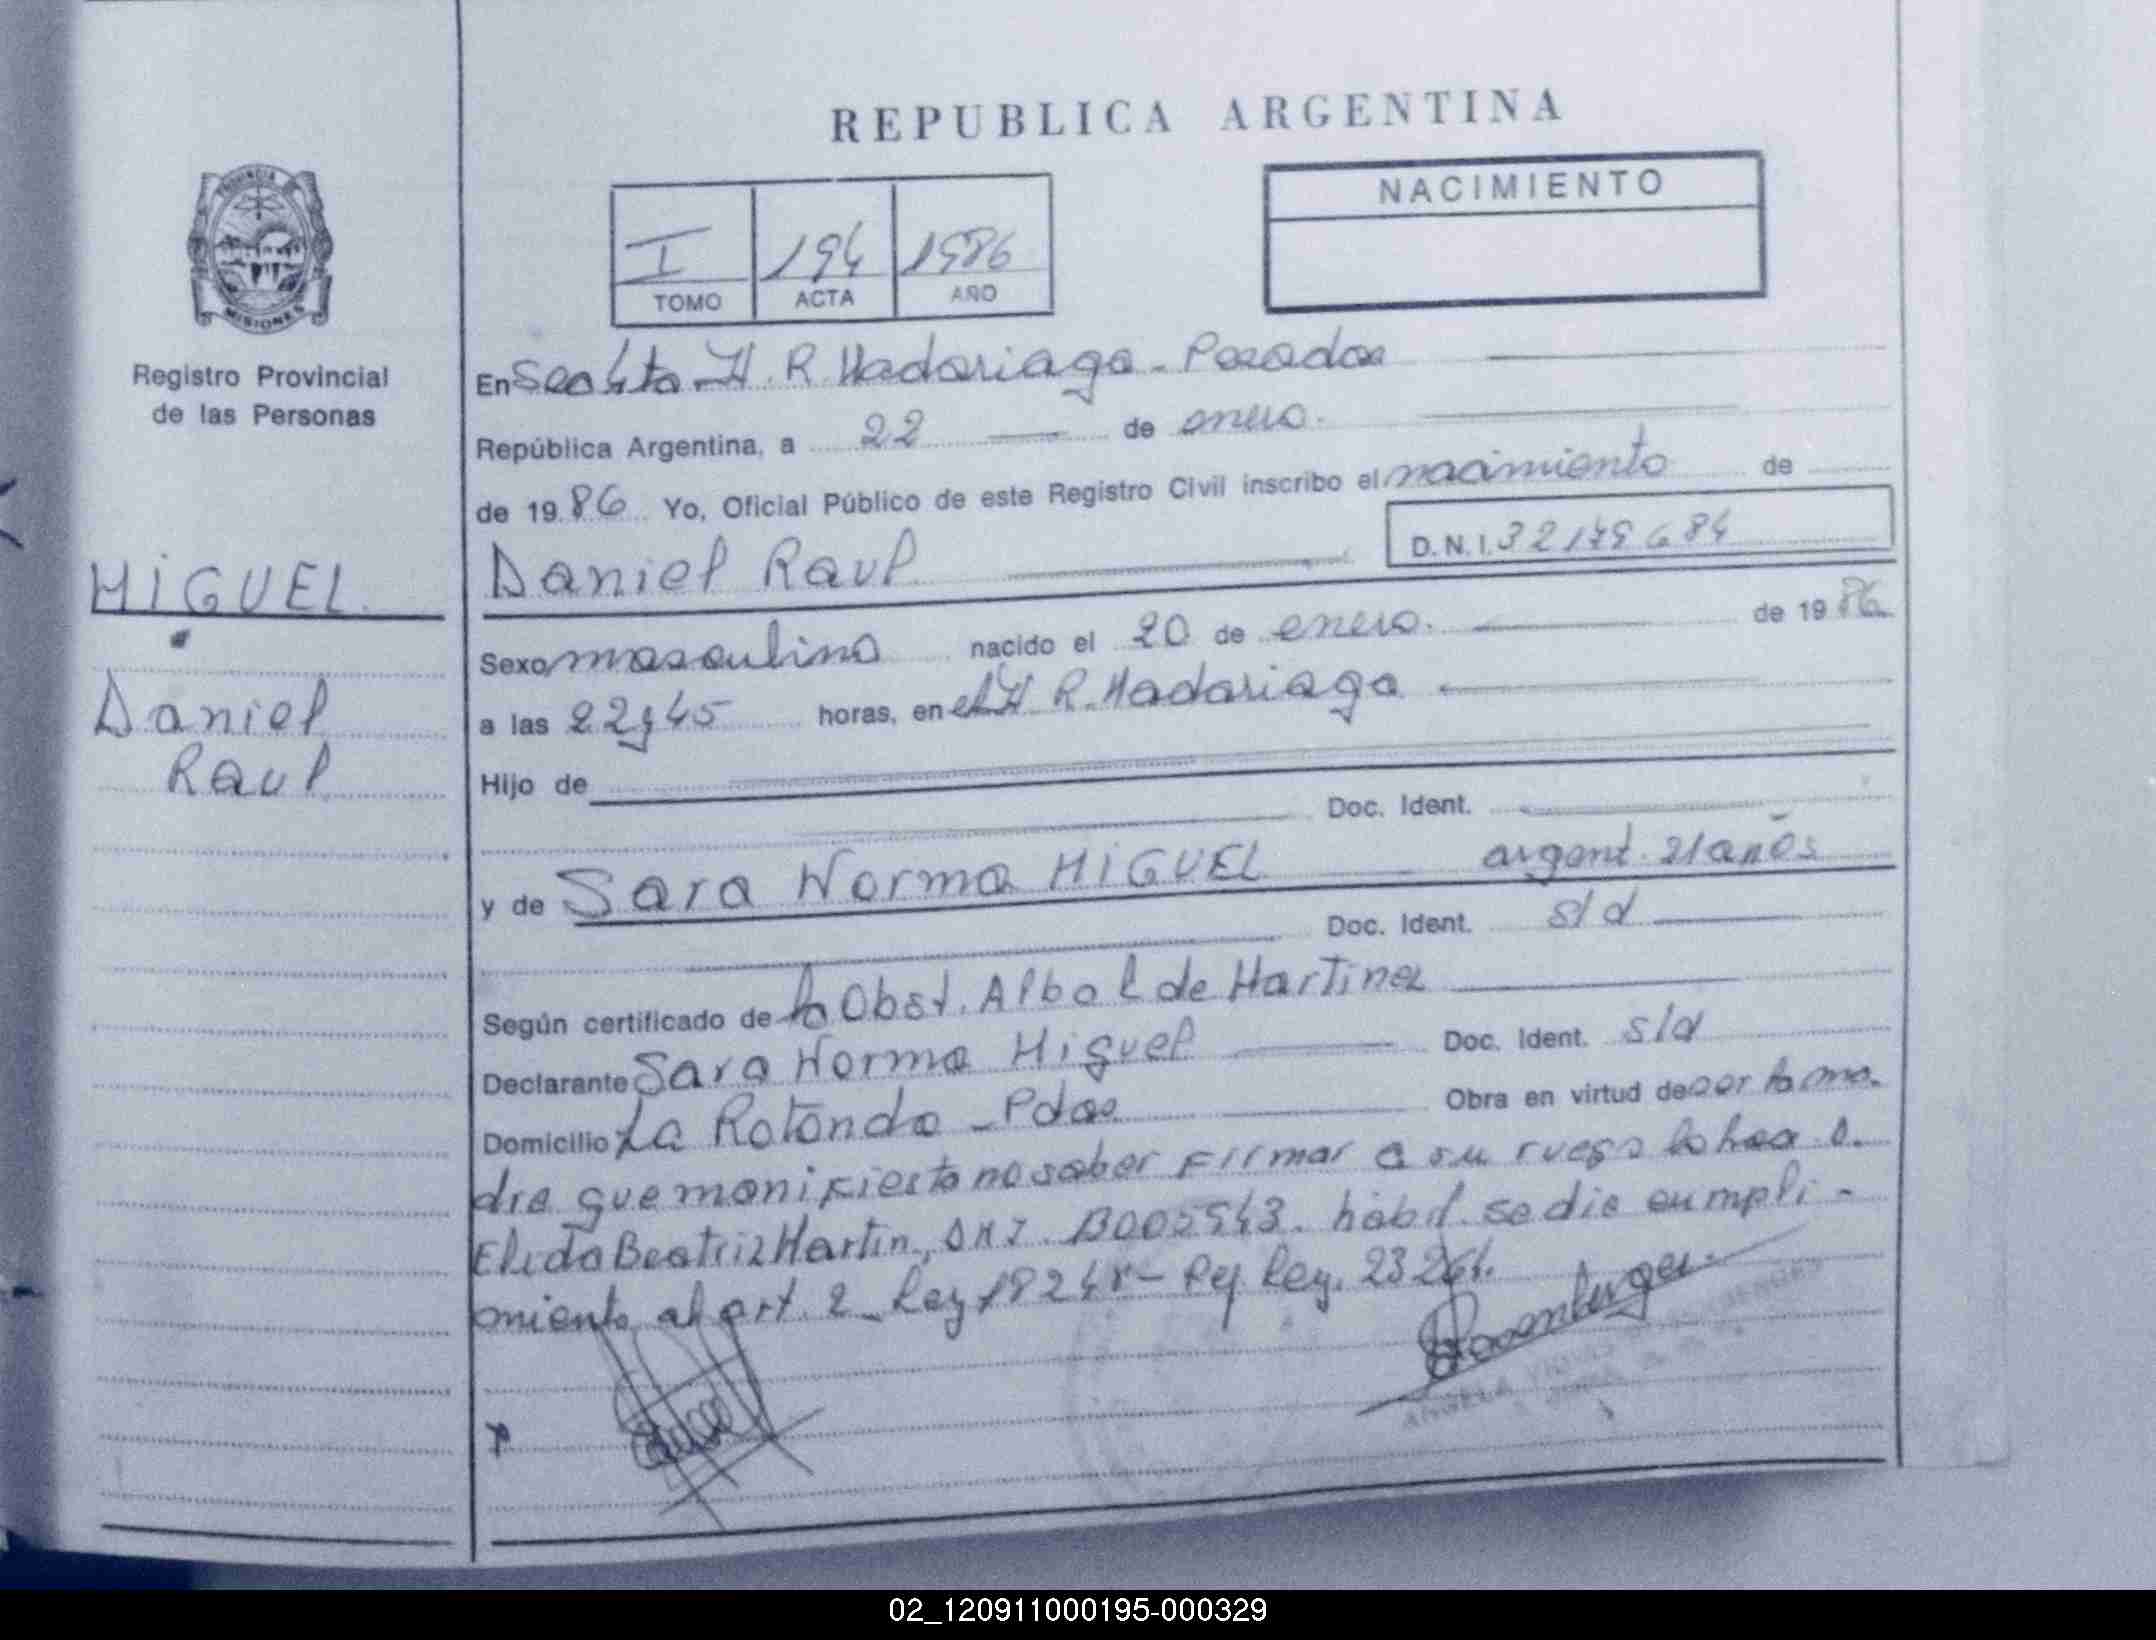 REPUBLICA ARGENTINA
PROVINCIA
MISIONES
Registro Provincial
de las Personas
I 194 1986
TOMO ACTA AÑO
NACIMIENTO
En H. R. Madariaga - Posadas
República Argentina, a 22 de enero.
de 1986 Yo, Oficial Público de este Registro Civil inscribo el nacimiento de
D.N.I. 32179684
MIGUEL
Daniel Raul
Sexo masculino nacido el 20 de enero. de 1986
Daniel
Raul
a las 22y45 horas, en el H R. Madariaga
Hijo de
Doc. Ident.
y de Sara Norma MIGUEL argent. 21 años
Doc. Ident. s/d
Según certificado de la Obst. Alba L de Martinez
Declarante Sara Norma Miguel Doc. Ident. s/d
Domicilio La Rotonda - Pdas Obra en virtud de ser la ma-
dre que manifiesta no saber firmar a su ruego lo hace
Elida Beatriz Martin, habil. se dio cumpli-
miento al art. 2 - Ley 18248 - Ley. 23264.
02_120911000195-000329